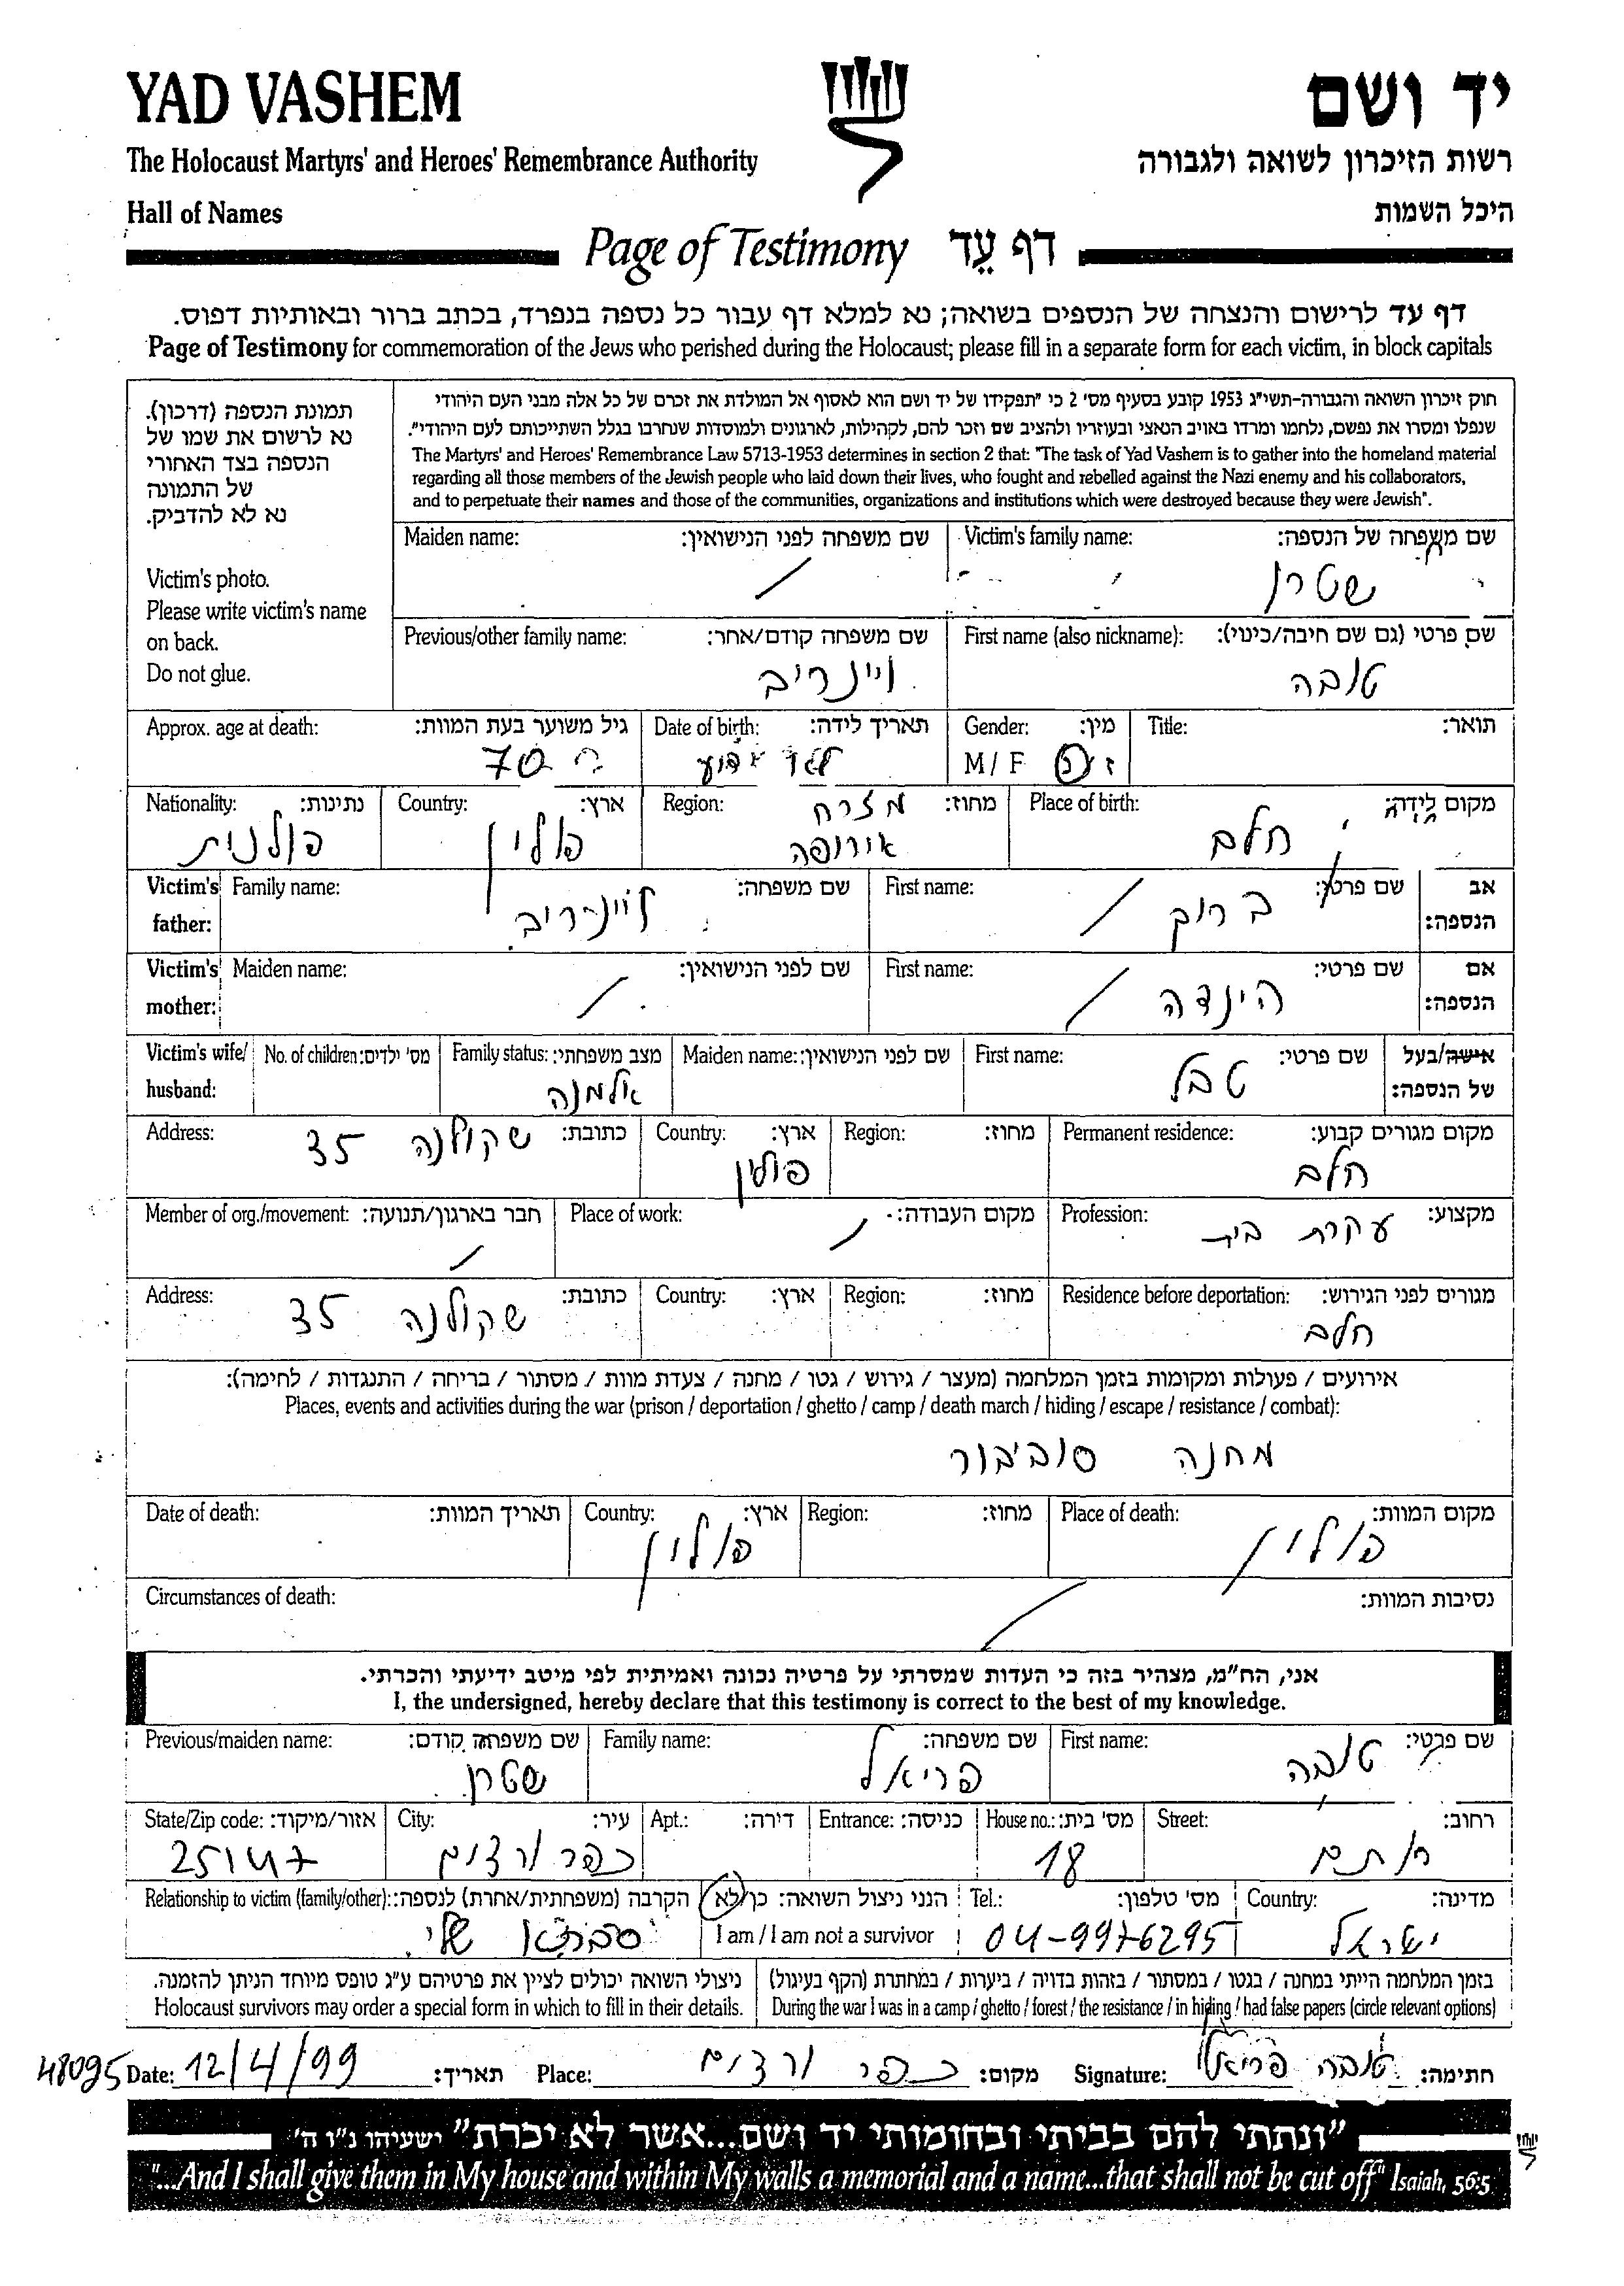 YAD VASHEM
יד ושם
The Holocaust Martyrs' and Heroes' Remembrance Authority
רשות הזיכרון לשואה ולגבורה
Hall of Names
היכל השמות
Page of Testimony דף עֵד
דף עד לרישום והנצחה של הנספים בשואה; נא למלא דף עבור כל נספה בנפרד, בכתב ברור ובאותיות דפוס.
Page of Testimony for commemoration of the Jews who perished during the Holocaust; please fill in a separate form for each victim, in block capitals
תמונת הנספה (דרכון).
נא לרשום את שמו של
הנספה בצד האחורי
של התמונה
נא לא להדביק.
Victim's photo.
Please write victim's name
on back.
Do not glue.
חוק זיכרון השואה והגבורה-תשי"ג 1953 קובע בסעיף מס' 2 כי "תפקידו של יד ושם הוא לאסוף אל המולדת את זכרם של כל אלה מבני העם היהודי
שנפלו ומסרו את נפשם, נלחמו ומרדו באויב הנאצי ובעוזריו ולהציב שם וזכר להם, לקהילות, לארגונים ולמוסדות שנחרבו בגלל השתייכותם לעם היהודי".
The Martyrs' and Heroes' Remembrance Law 5713-1953 determines in section 2 that: "The task of Yad Vashem is to gather into the homeland material
regarding all those members of the Jewish people who laid down their lives, who fought and rebelled against the Nazi enemy and his collaborators,
and to perpetuate their names and those of the communities, organizations and institutions which were destroyed because they were Jewish".
Maiden name: שם משפחה לפני הנישואין: Victim's family name: שם משפחה של הנספה:
שטרן
Previous/other family name: שם משפחה קודם/אחר: First name (also nickname): שם פרטי (גם שם חיבה/כינוי):
ויינריב טובה
Approx. age at death: גיל משוער בעת המוות: Date of birth: תאריך לידה: Gender: מין: Title: תואר:
70 לא ידוע M / F ז
Nationality: נתינות: Country: ארץ: Region: מחוז: Place of birth: מקום לידה:
פולנית פולין מזרח אירופה חלם
Victim's father: Family name: שם משפחה: First name: שם פרטי: אב הנספה:
ויינריב ברוך
Victim's mother: Maiden name: שם לפני הנישואין: First name: שם פרטי: אם הנספה:
הינדה
Victim's wife/ husband: No. of children: מס' ילדים: Family status: מצב משפחתי: Maiden name: שם לפני הנישואין: First name: שם פרטי: אישה/בעל של הנספה:
אלמנה
Address: כתובת: Country: ארץ: Region: מחוז: Permanent residence: מקום מגורים קבוע:
שקולנה 35 פולין חלם
Member of org./movement: חבר בארגון/תנועה: Place of work: מקום העבודה: Profession: מקצוע:
עקרת בית
Address: כתובת: Country: ארץ: Region: מחוז: Residence before deportation: מגורים לפני הגירוש:
שקולנה 35 חלם
אירועים / פעולות ומקומות בזמן המלחמה (מעצר / גירוש / גטו / מחנה / צעדת מוות / מסתור / בריחה / התנגדות / לחימה):
Places, events and activities during the war (prison / deportation / ghetto / camp / death march / hiding / escape / resistance / combat):
מחנה סוביבור
Date of death: תאריך המוות: Country: ארץ: Region: מחוז: Place of death: מקום המוות:
פולין פולין
Circumstances of death: נסיבות המוות:
אני, הח"מ, מצהיר בזה כי העדות שמסרתי על פרטיה נכונה ואמיתית לפי מיטב ידיעתי והכרתי.
I, the undersigned, hereby declare that this testimony is correct to the best of my knowledge.
Previous/maiden name: שם משפחה קודם: Family name: שם משפחה: First name: שם פרטי:
שטרן פריאל טובה
State/Zip code: אזור/מיקוד: City: עיר: Apt.: דירה: Entrance: כניסה: House no.: מס' בית: Street: רחוב:
25147 כפר ורדים 18 רותם
Relationship to victim (family/other): הקרבה (משפחתית/אחרת) לנספה: הנני ניצול השואה: כן/לא Tel.: מס' טלפון: Country: מדינה:
סבתא שלי I am / I am not a survivor 04-9976295 ישראל
ניצולי השואה יכולים לציין את פרטיהם ע"ג טופס מיוחד הניתן להזמנה. בזמן המלחמה הייתי במחנה / בגטו / במסתור / בזהות בדויה / ביערות / במחתרת (הקף בעיגול)
Holocaust survivors may order a special form in which to fill in their details. During the war I was in a camp / ghetto / forest / the resistance / in hiding / had false papers (circle relevant options)
48095 Date: 12/4/99 תאריך: Place: כפר ורדים מקום: Signature: טובה פריאל חתימה:
"ונתתי להם בביתי ובחומותי יד ושם...אשר לא יכרת" ישעיהו נ"ו ה'
"...And I shall give them in My house and within My walls a memorial and a name...that shall not be cut off" Isaiah, 56:5